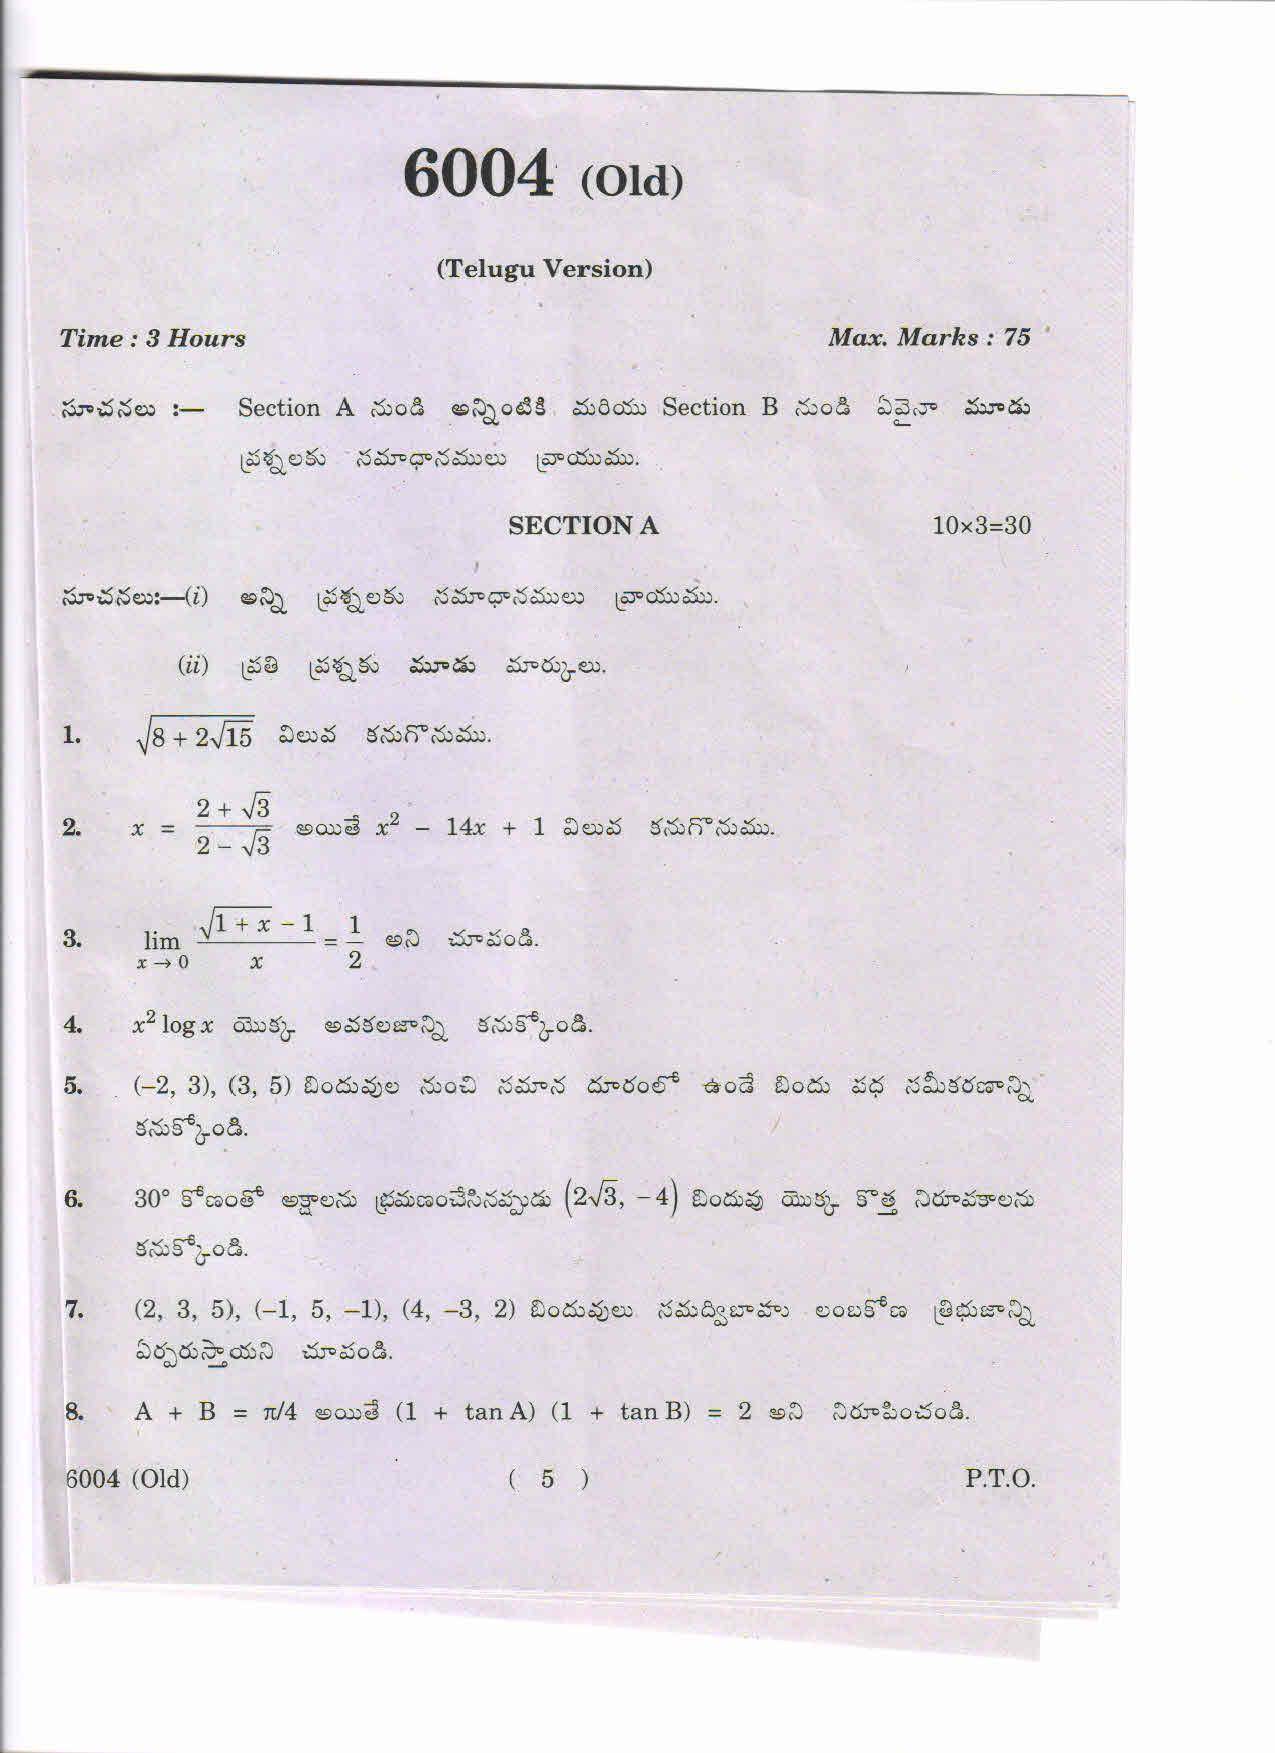 6004 (Old)
(Telugu Version)
Time : 3 Hours Max. Marks : 75
సూచనలు :— Section A నుండి అన్నింటికి మరియు Section B నుండి ఏవైనా మూడు
ప్రశ్నలకు సమాధానములు వ్రాయుము.
SECTION A 10×3=30
సూచనలు:—(i) అన్ని ప్రశ్నలకు సమాధానములు వ్రాయుము.
(ii) ప్రతి ప్రశ్నకు మూడు మార్కులు.
1. √(8 + 2√15) విలువ కనుగొనుము.
2. x = (2 + √3)/(2 − √3) అయితే x² − 14x + 1 విలువ కనుగొనుము.
3. lim x→0 (√(1 + x) − 1)/x = 1/2 అని చూపండి.
4. x² log x యొక్క అవకలజాన్ని కనుక్కోండి.
5. (–2, 3), (3, 5) బిందువుల నుంచి సమాన దూరంలో ఉండే బిందు పథ సమీకరణాన్ని
కనుక్కోండి.
6. 30° కోణంతో అక్షాలను భ్రమణంచేసినప్పుడు (2√3, −4) బిందువు యొక్క కొత్త నిరూపకాలను
కనుక్కోండి.
7. (2, 3, 5), (–1, 5, –1), (4, –3, 2) బిందువులు సమద్విబాహు లంబకోణ త్రిభుజాన్ని
ఏర్పరుస్తాయని చూపండి.
8. A + B = π/4 అయితే (1 + tan A) (1 + tan B) = 2 అని నిరూపించండి.
6004 (Old) ( 5 ) P.T.O.